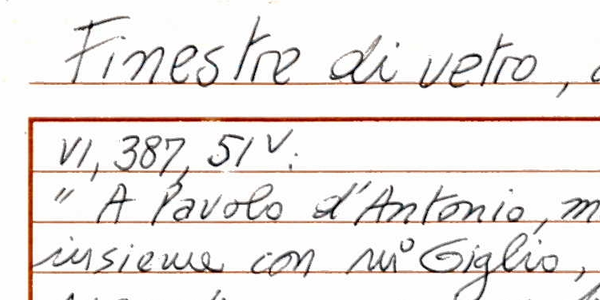 Finestre di vetro,
VI, 387, 51v.
" A Pavolo d'Antonio, m
insieme con mº Giglio,